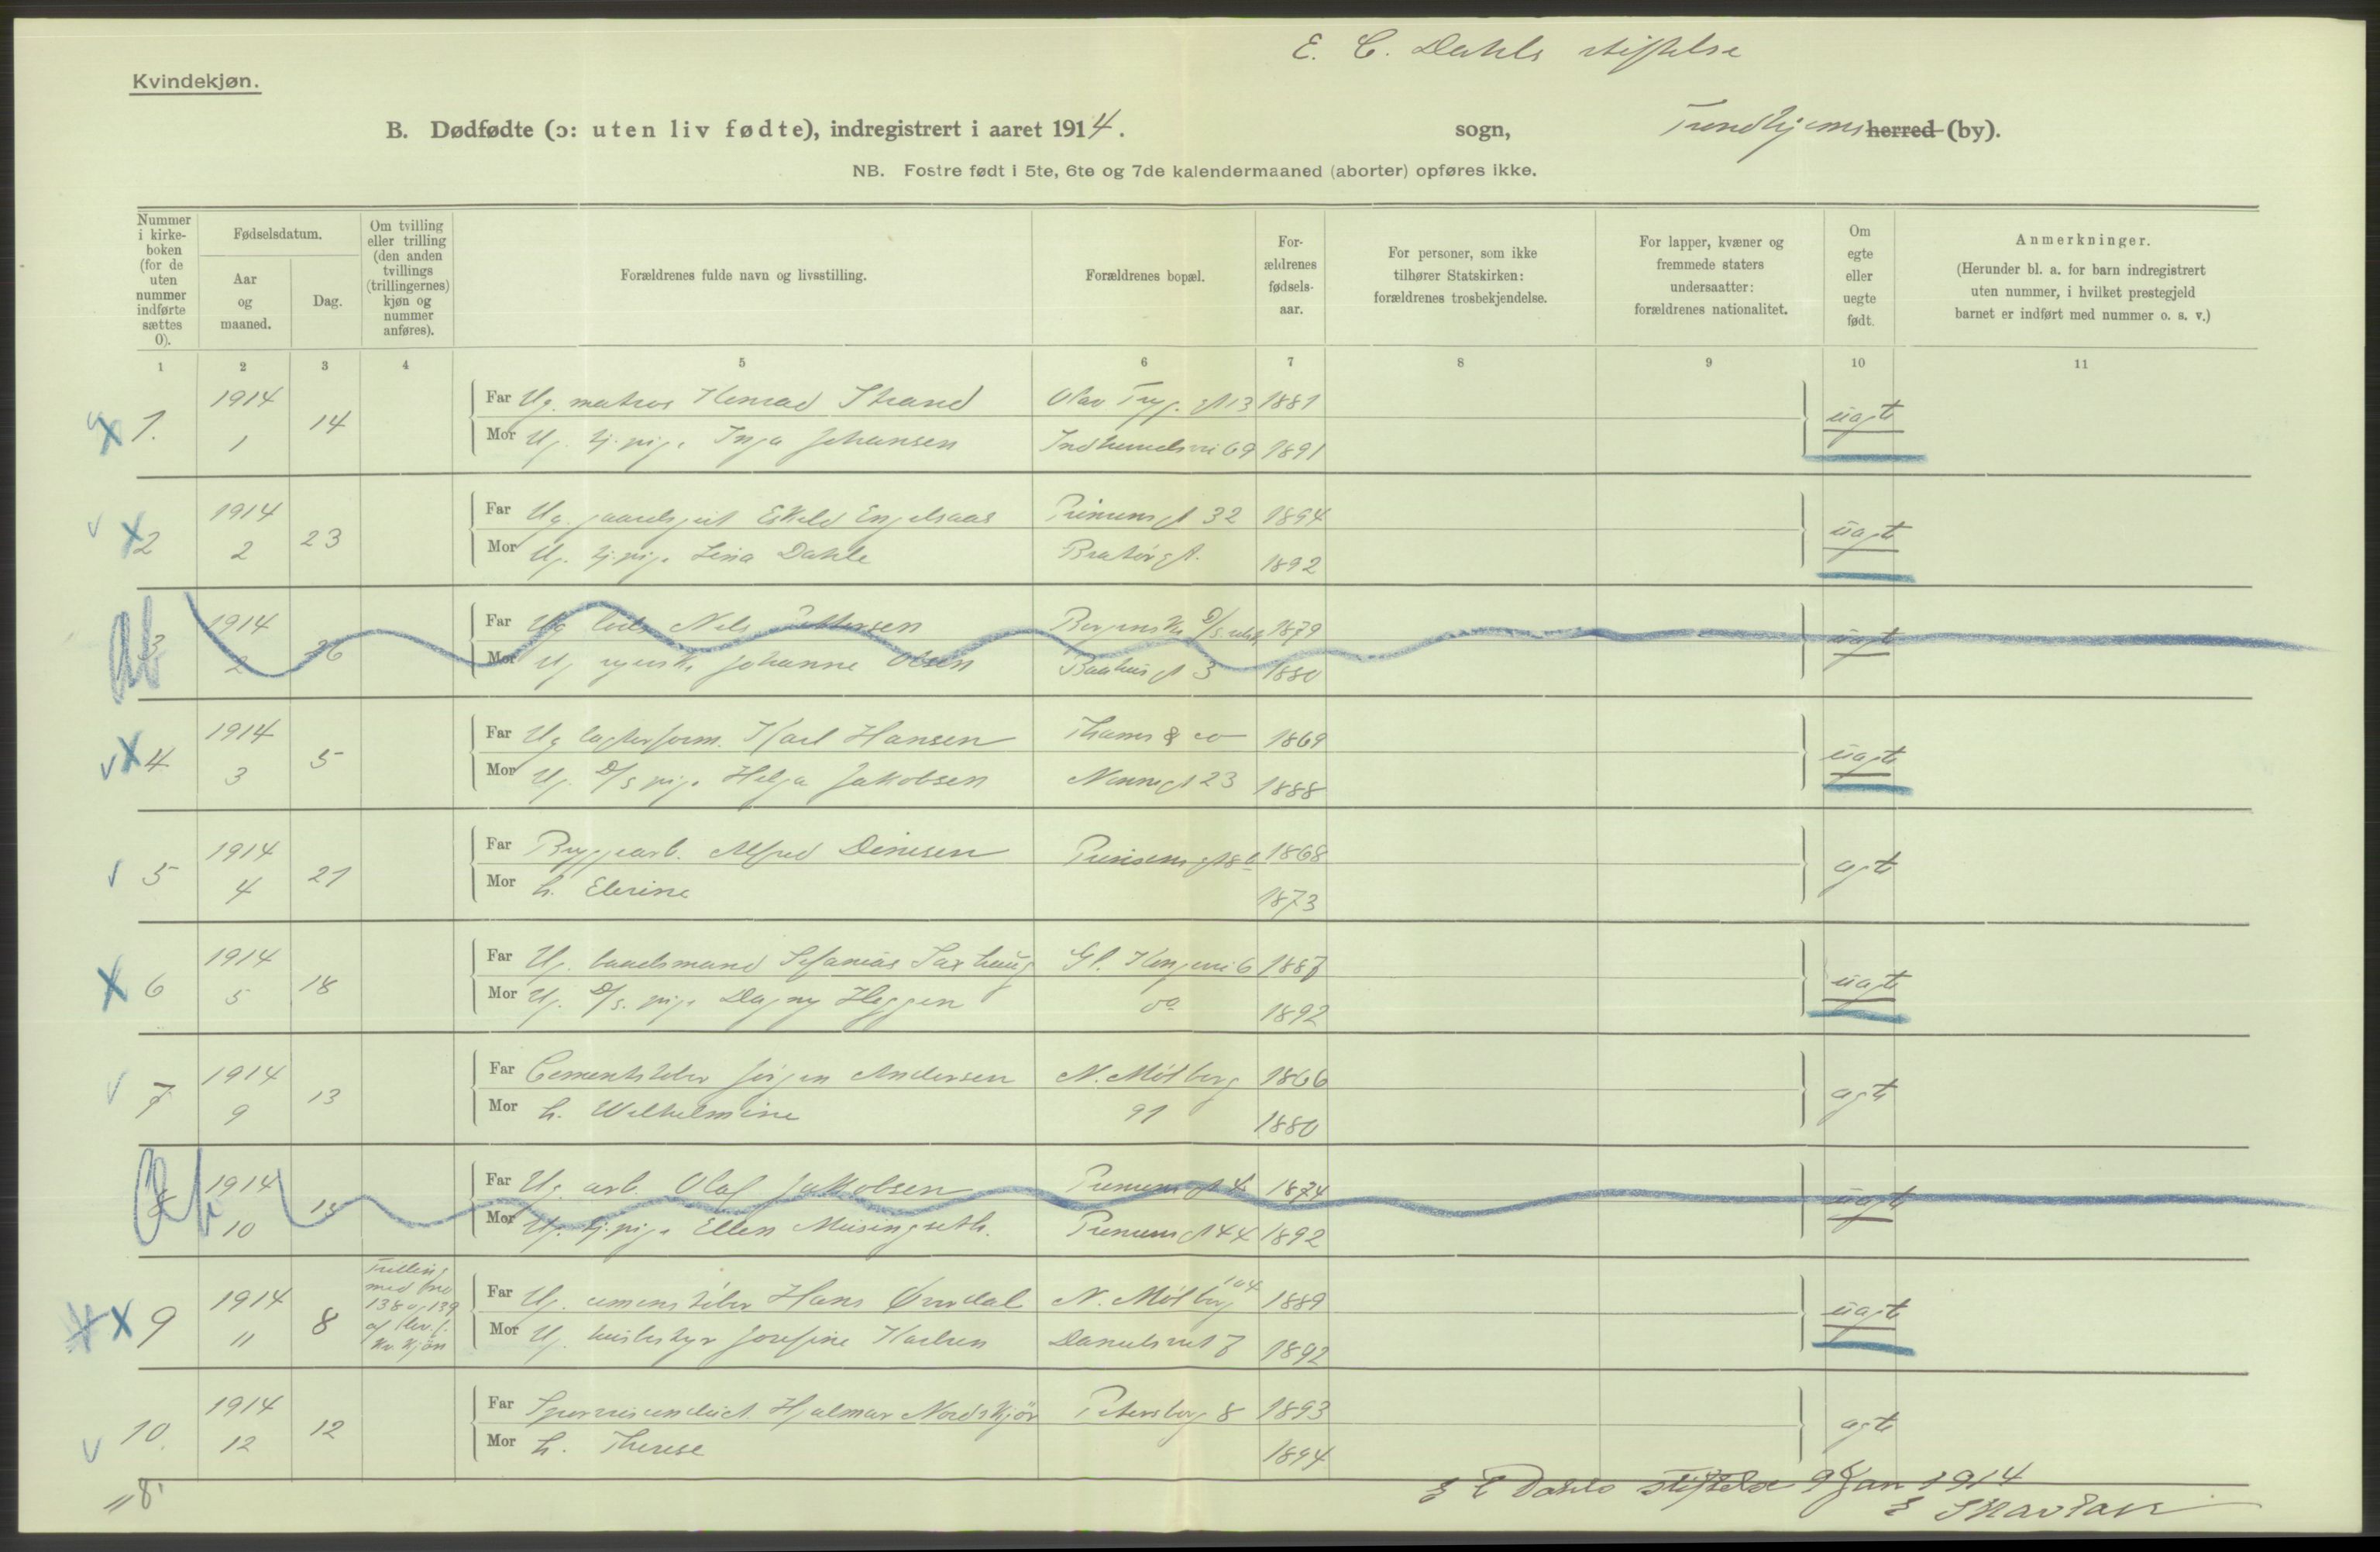 E. C. Dahls stiftelse
Kvindekjøn.
B. Dødfødte (ɔ: uten liv fødte), indregistrert i aaret 1914. sogn, Trondhjems herred (by).
NB. Fostre født i 5te, 6te og 7de kalendermaaned (aborter) opføres ikke.
Nummer i kirke-boken (for de uten nummer indførte sættes 0).
Fødselsdatum.
Aar og maaned.
Dag.
Om tvilling eller trilling (den anden tvillings (trillingernes) kjøn og nummer anføres).
Forældrenes fulde navn og livsstilling.
Forældrenes bopæl.
For-ældrenes fødsels-aar.
For personer, som ikke tilhører Statskirken: forældrenes trosbekjendelse.
For lapper, kvæner og fremmede staters undersaatter: forældrenes nationalitet.
Om egte eller uegte født.
Anmerkninger.
(Herunder bl. a. for barn indregistrert uten nummer, i hvilket prestegjeld barnet er indført med nummer o. s. v.)
1 2 3 4 5 6 7 8 9 10 11
x 1. 1914 1 14 Far Ug. matros Konrad Strand Olav Tryg. gt 13 1881 uagte
Mor Ug. tj.pige Inga Johansen 69 1891
v x 2 1914 2 23 Far Ug. gaardsgut Eskild Engelsaas Prinsensgt 32 1894 uagte
Mor Ug. tj.pige Lena Dahle Bratørgt. 1892
Ab 3 1914 2 26 Far Ug. Nils Pettersen Bergenske D/S. 1879 uagte
Mor Ug. Johanne Olsen Baahusgt 3 1880
v x 4 1914 3 5 Far Ug. Karl Hansen Thams & co 1869 uagte
Mor Ug. D/S pige Helga Jakobsen Nonnegt 23 1888
v 5 1914 4 21 Far Bryggearb. Alfred Dinesen Prinsensgt 1868 agte
Mor h. Elerine 1873
x 6 1914 5 18 Far Ug. baadsmand Sefanias Saxhaug Gl. Kongevei 6 1887 uagte
Mor Ug. D/S. pige Dagny Heggen do 1892
v 7 1914 9 13 Far Cementstøber Jørgen Andersen N. Møllberg 1866 agte
Mor h. Wilhelmine 91 1880
Ab 8 1914 10 15 Far Ug. arb. Olaf Jakobsen Prinsensgt 4 1874 uagte
Mor Ug. tj.pige Ellen Meisingseth. Prinsensgt 44 1892
x 9 1914 11 8 Trilling med no 138 og 139 af lev. f. Kv. Kjøn Far Ug. cementstøber Hans N. Møllberg 104 1889 uagte
Mor Ug. husbestyr Josefine Karlsen Danielsveit 7 1892
v 10. 1914 12 12 Far Hjalmar Nordskjør Petersborg 8 1893 agte
Mor h. Therese 1894
"8.
E C Dahls stiftelse 9 Jan 1914
E Skavlan